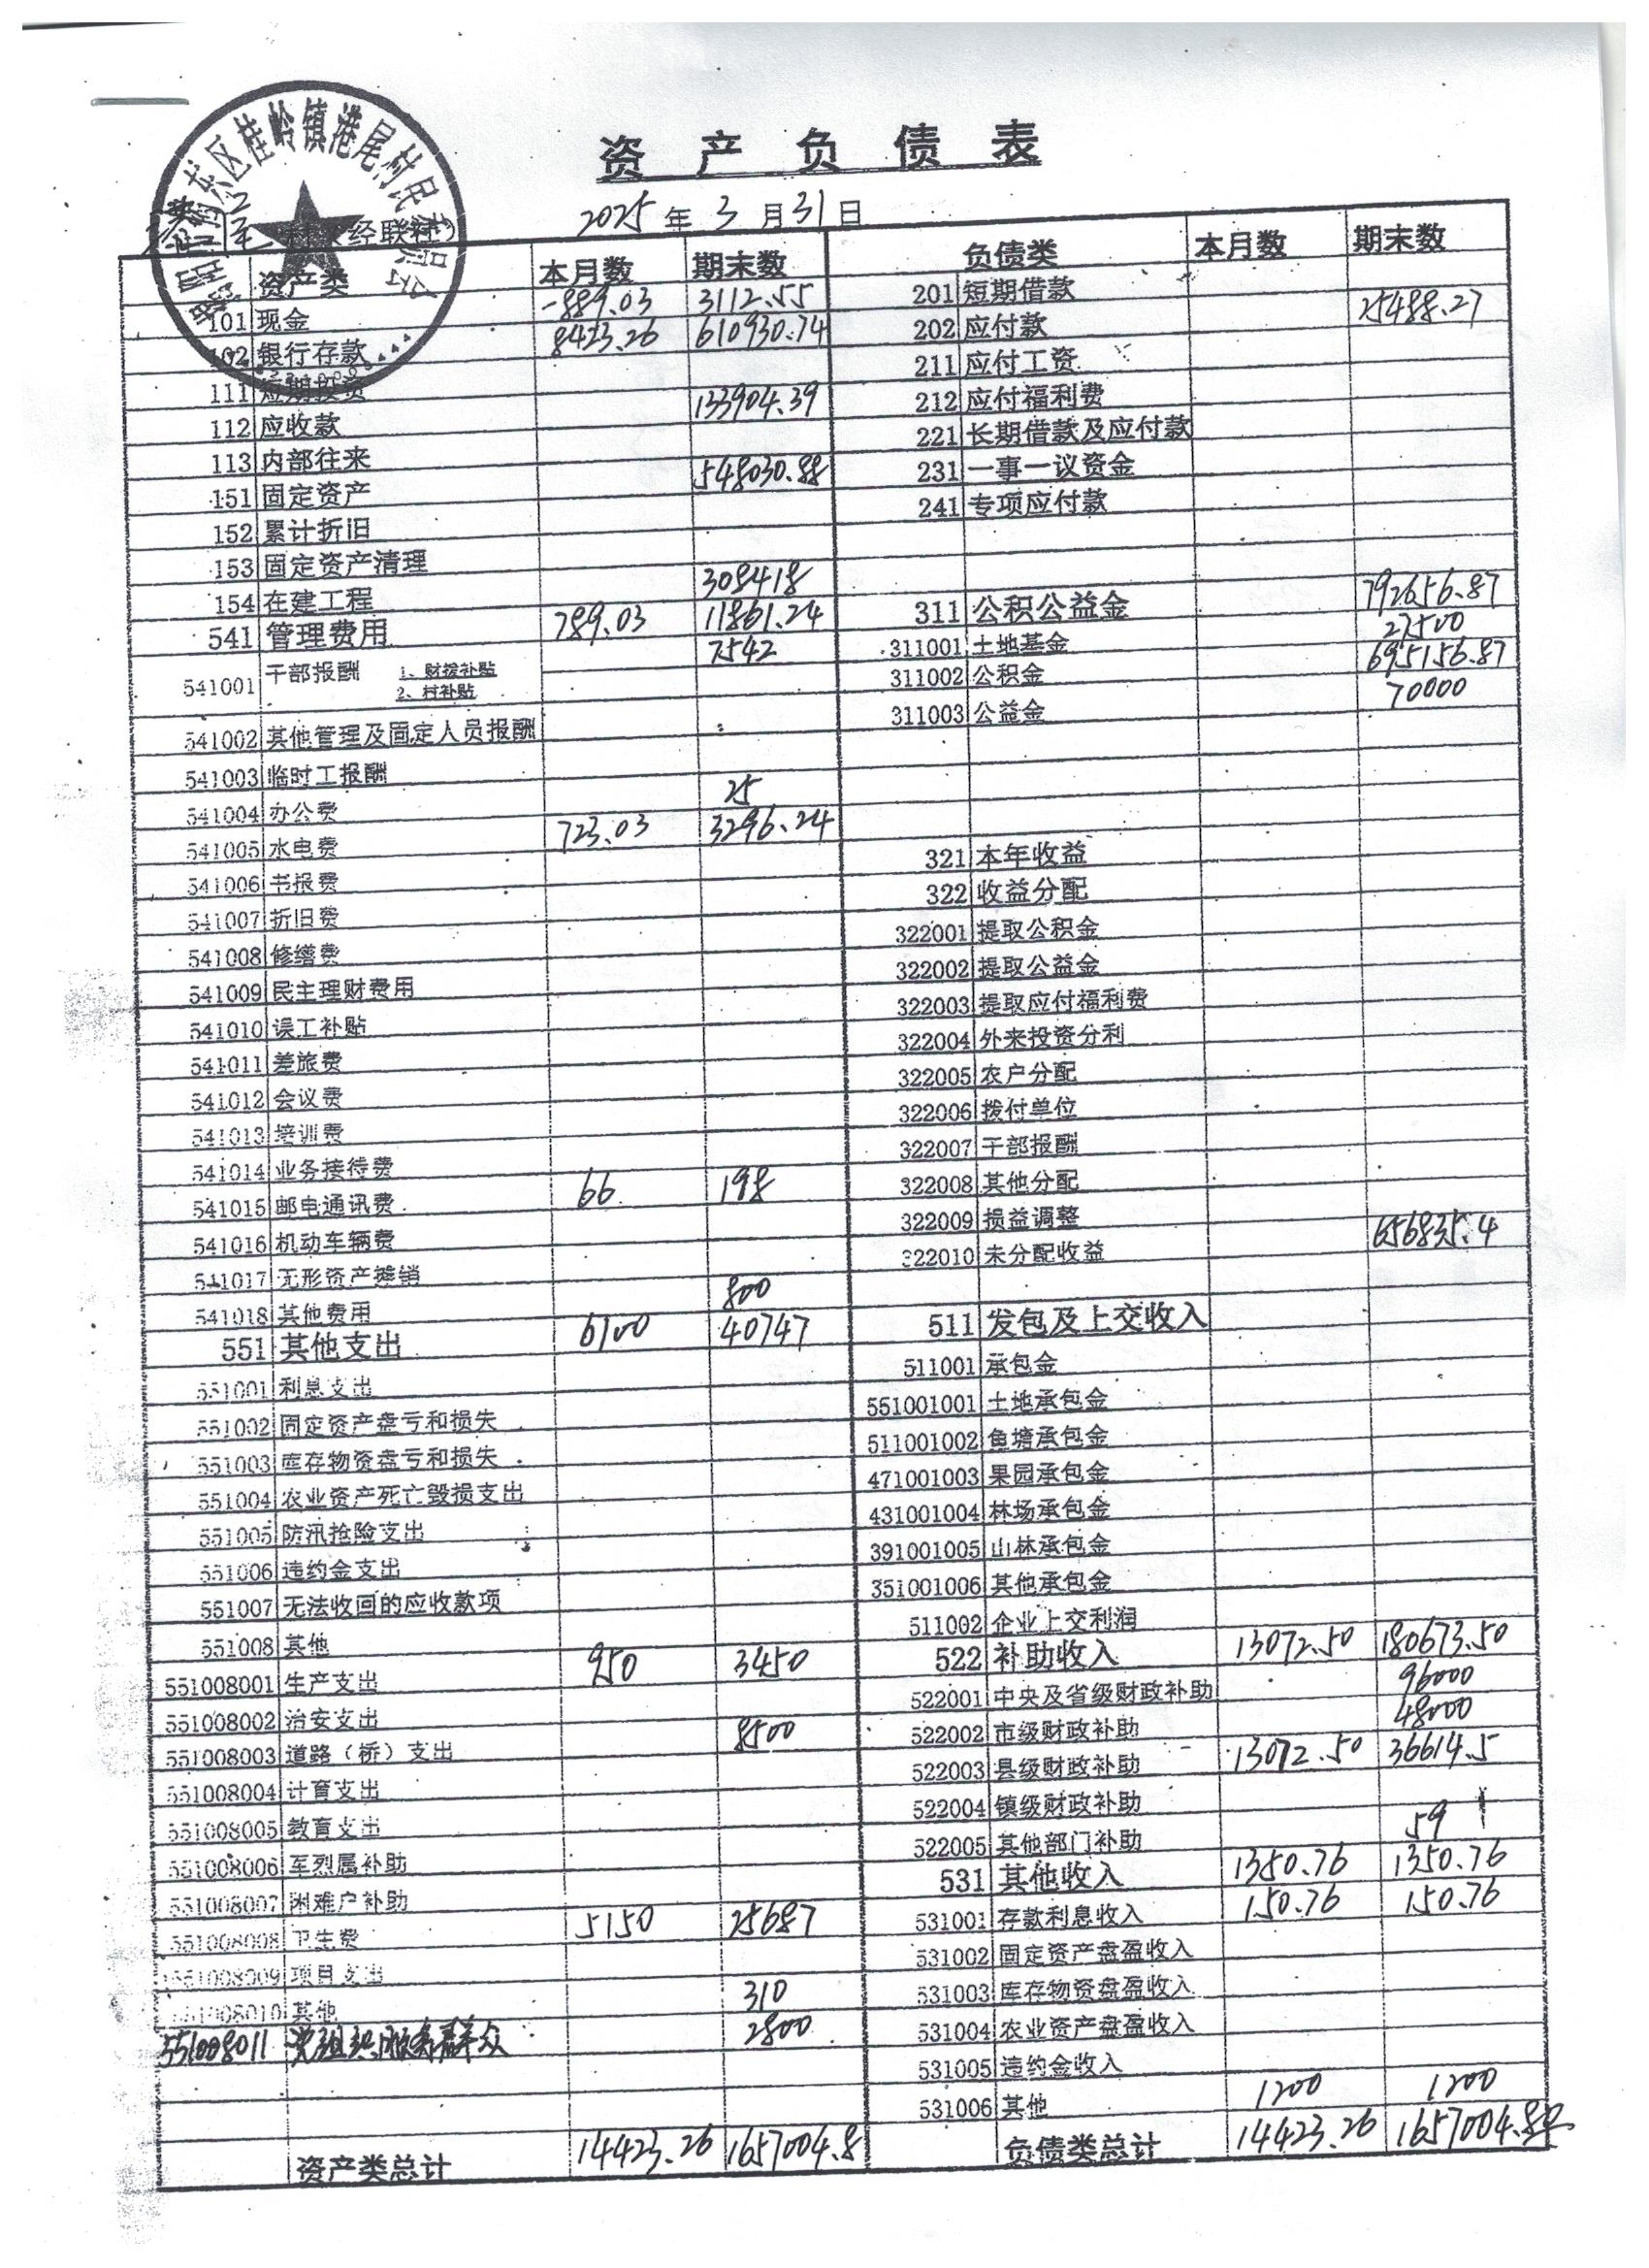 资产负债表
2025年3月31日
经联社)
资产类 本月数 期末数 负债类 本月数 期末数
101 现金 -889.03 3112.55 201 短期借款
102 银行存款 8423.26 610930.74 202 应付款 25488.27
111 短期投资 211 应付工资
112 应收款 133904.39 212 应付福利费
113 内部往来 221 长期借款及应付款
151 固定资产 548030.88 231 一事一议资金
152 累计折旧 241 专项应付款
153 固定资产清理
154 在建工程 308418
541 管理费用 789.03 11861.24 311 公积公益金 792656.87
541001 干部报酬 1、财拨补贴 7542 311001 土地基金 27500
2、村补贴 311002 公积金 695156.87
541002 其他管理及固定人员报酬 311003 公益金 70000
541003 临时工报酬
541004 办公费 25
541005 水电费 723.03 3296.24
541006 书报费 321 本年收益
541007 折旧费 322 收益分配
541008 修缮费 322001 提取公积金
541009 民主理财费用 322002 提取公益金
541010 误工补贴 322003 提取应付福利费
541011 差旅费 322004 外来投资分利
541012 会议费 322005 农户分配
541013 培训费 322006 拨付单位
541014 业务接待费 322007 干部报酬
541015 邮电通讯费 66 198 322008 其他分配
541016 机动车辆费 322009 损益调整
541017 无形资产摊销 322010 未分配收益 656835.4
541018 其他费用 800
551 其他支出 6100 40747 511 发包及上交收入
551001 利息支出 511001 承包金
551002 固定资产盘亏和损失 551001001 土地承包金
551003 库存物资盘亏和损失 511001002 鱼塘承包金
551004 农业资产死亡毁损支出 471001003 果园承包金
551005 防汛抢险支出 431001004 林场承包金
551006 违约金支出 391001005 山林承包金
551007 无法收回的应收款项 351001006 其他承包金
551008 其他 511002 企业上交利润
551008001 生产支出 950 3450 522 补助收入 13072.50 180673.50
551008002 治安支出 522001 中央及省级财政补助 96000
551008003 道路（桥）支出 8500 522002 市级财政补助 48000
551008004 计育支出 522003 县级财政补助 13072.50 36614.5
551008005 教育支出 522004 镇级财政补助
551008006 军烈属补助 522005 其他部门补助 59
551008007 困难户补助 531 其他收入 1350.76 1350.76
551008008 卫生费 5150 25687 531001 存款利息收入 150.76 150.76
551008009 项目支出 531002 固定资产盘盈收入
551008010 其他 310 531003 库存物资盘盈收入
551008011 党组织服务群众 2800 531004 农业资产盘盈收入
531005 违约金收入
531006 其他 1200 1200
资产类总计 14423.26 1657004.8 负债类总计 14423.26 1657004.8